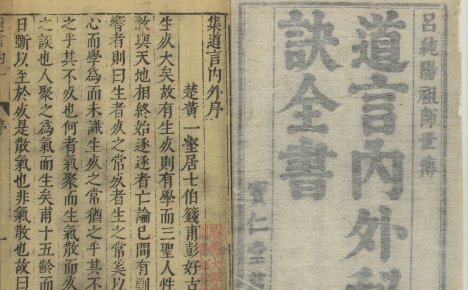 呂純陽祖師世傳
道言內外秘
訣全書
寶仁堂
集道言內外序
楚黃一壑居士伯籛甫彭好古
生死大矣故有生死則有學而三聖人性
教與天地相終始逐逐者亡論已間有
響者則曰生者死之常死者生之常奚以
心而學為而未識生死之常猶之乎其不
之乎其不死也何者氣聚而生氣散而死
之談也人聚之為氣而生矣甫十五齡而
日斷以至於死是散氣也非氣散也故曰
道言內
序